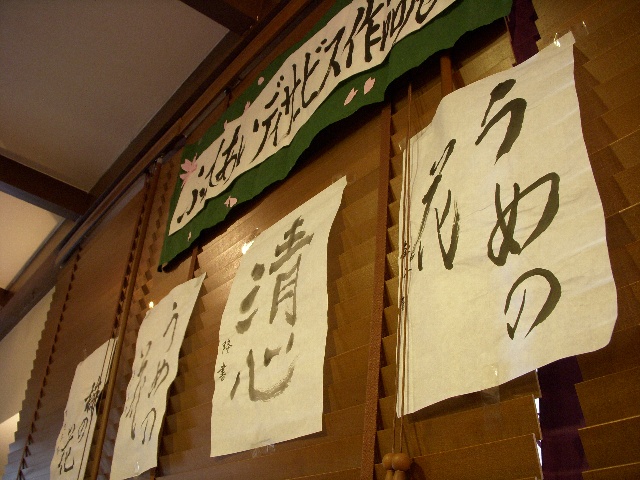 ふれあいデイサービス作品
うめの
花
清心
うめの
花
梅の
花